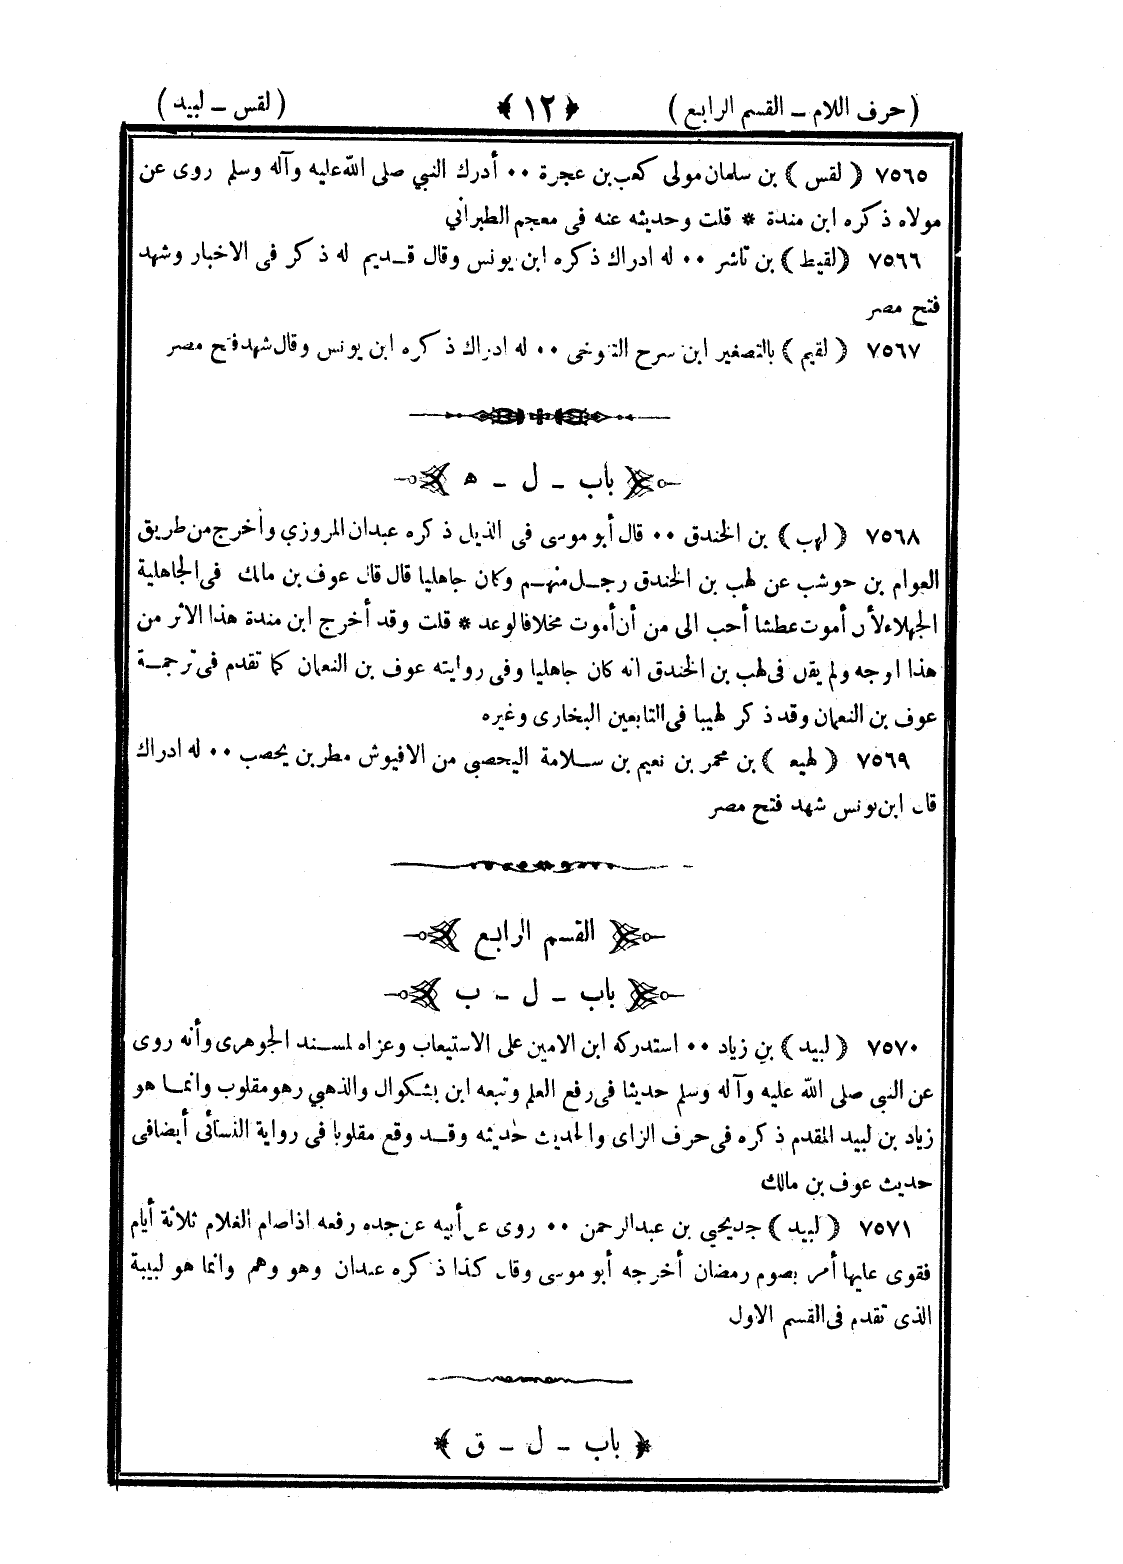 ( حرف اللام ــ القسم الرابع ) ﴿ ١٢ ﴾ ( لقس ــ لبيد )
٧٥٦٥ ﴿ لقس ﴾ بن سلمان مولى كعب بن عجرة ٠٠ أدرك النبي صلى الله عليه وآله وسلم روى عن
مولاه ذكره ابن مندة * قلت وحديثه عنه فى معجم الطبراني
٧٥٦٦ ﴿ لقيط ﴾ بن ناشر ٠٠ له ادراك ذكره ابن يونس وقال قديم له ذكر فى الاخبار وشهد
فتح مصر
٧٥٦٧ ﴿ لقيم ﴾ بالتصغير ابن سرح التنوخى ٠٠ له ادراك ذكره ابن يونس وقال شهد فتح مصر
باب ـ ل ـ ه
٧٥٦٨ ﴿ لهب ﴾ بن الخندق ٠٠ قال أبو موسى فى الذيل ذكره عبدان المروزي وأخرج من طريق
العوام بن حوشب عن لهب بن الخندق رجل منهم وكان جاهليا قال قال عوف بن مالك فى الجاهلية
الجهلاء لأن أموت عطشا أحب الى من أن أموت مخلافا لوعد * قلت وقد أخرج ابن مندة هذا الاثر من
هذا الوجه ولم يقل فى لهب بن الخندق انه كان جاهليا وفى روايته عوف بن النعمان كما تقدم فى ترجمة
عوف بن النعمان وقد ذكر لهيبا فى التابعين البخارى وغيره
٧٥٦٩ ﴿ لهيعة ﴾ بن مخمر بن نعيم بن سلامة اليحصبى من الافيوش مطر بن يحصب ٠٠ له ادراك
قال ابن يونس شهد فتح مصر
القسم الرابع
باب ـ ل ـ ب
٧٥٧٠ ﴿ لبيد ﴾ بن زياد ٠٠ استدركه ابن الامين على الاستيعاب وعزاه لمسند الجوهرى وأنه روى
عن النبى صلى الله عليه وآله وسلم حديثا فى رفع العلم وتبعه ابن بشكوال والذهبي وهو مقلوب وانما هو
زياد بن لبيد المقدم ذكره فى حرف الزاى والحديث حديثه وقد وقع مقلوبا فى رواية النسائى أيضا فى
حديث عوف بن مالك
٧٥٧١ ﴿ لبيد ﴾ جد يحيي بن عبد الرحمن ٠٠ روى عن أبيه عن جده رفعه اذا صام الغلام ثلاثة أيام
فقوى عليها أمر بصوم رمضان أخرجه أبو موسى وقال كذا ذكره عبدان وهو وهم وانما هو لبيبة
الذى تقدم فى القسم الاول
﴿ باب ـ ل ـ ق ﴾